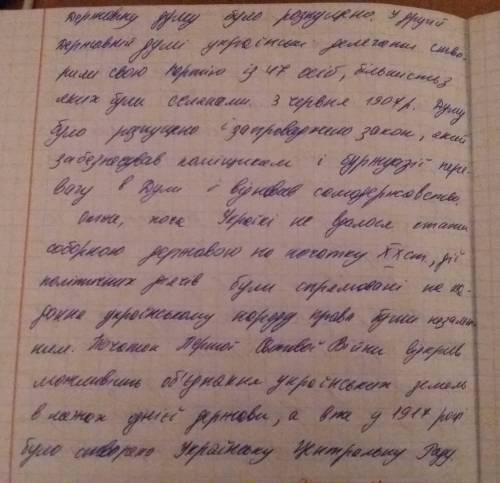 Державну думу було розпущено. У другій
Державній думі українські делегати ство-
рили свою партію із 47 осіб, більшість з
яких були селянами. 3 червня 1907 р. Думу
було розпущено і запроваджено закон, який
забезпечував поміщикам і буржуазії пере-
вагу в Думі й відновив самодержавство.
Отже, хоча Україні не вдалося стати
соборною державою на початку XX ст., дії
політичних діячів були спрямовані на на-
дання українському народу права бути незалеж-
ним. Початок Першої Світової Війни відкрив
можливість об'єднання українських земель
в межах однієї держави, а вже у 1917 році
було створено Українську Центральну Раду.